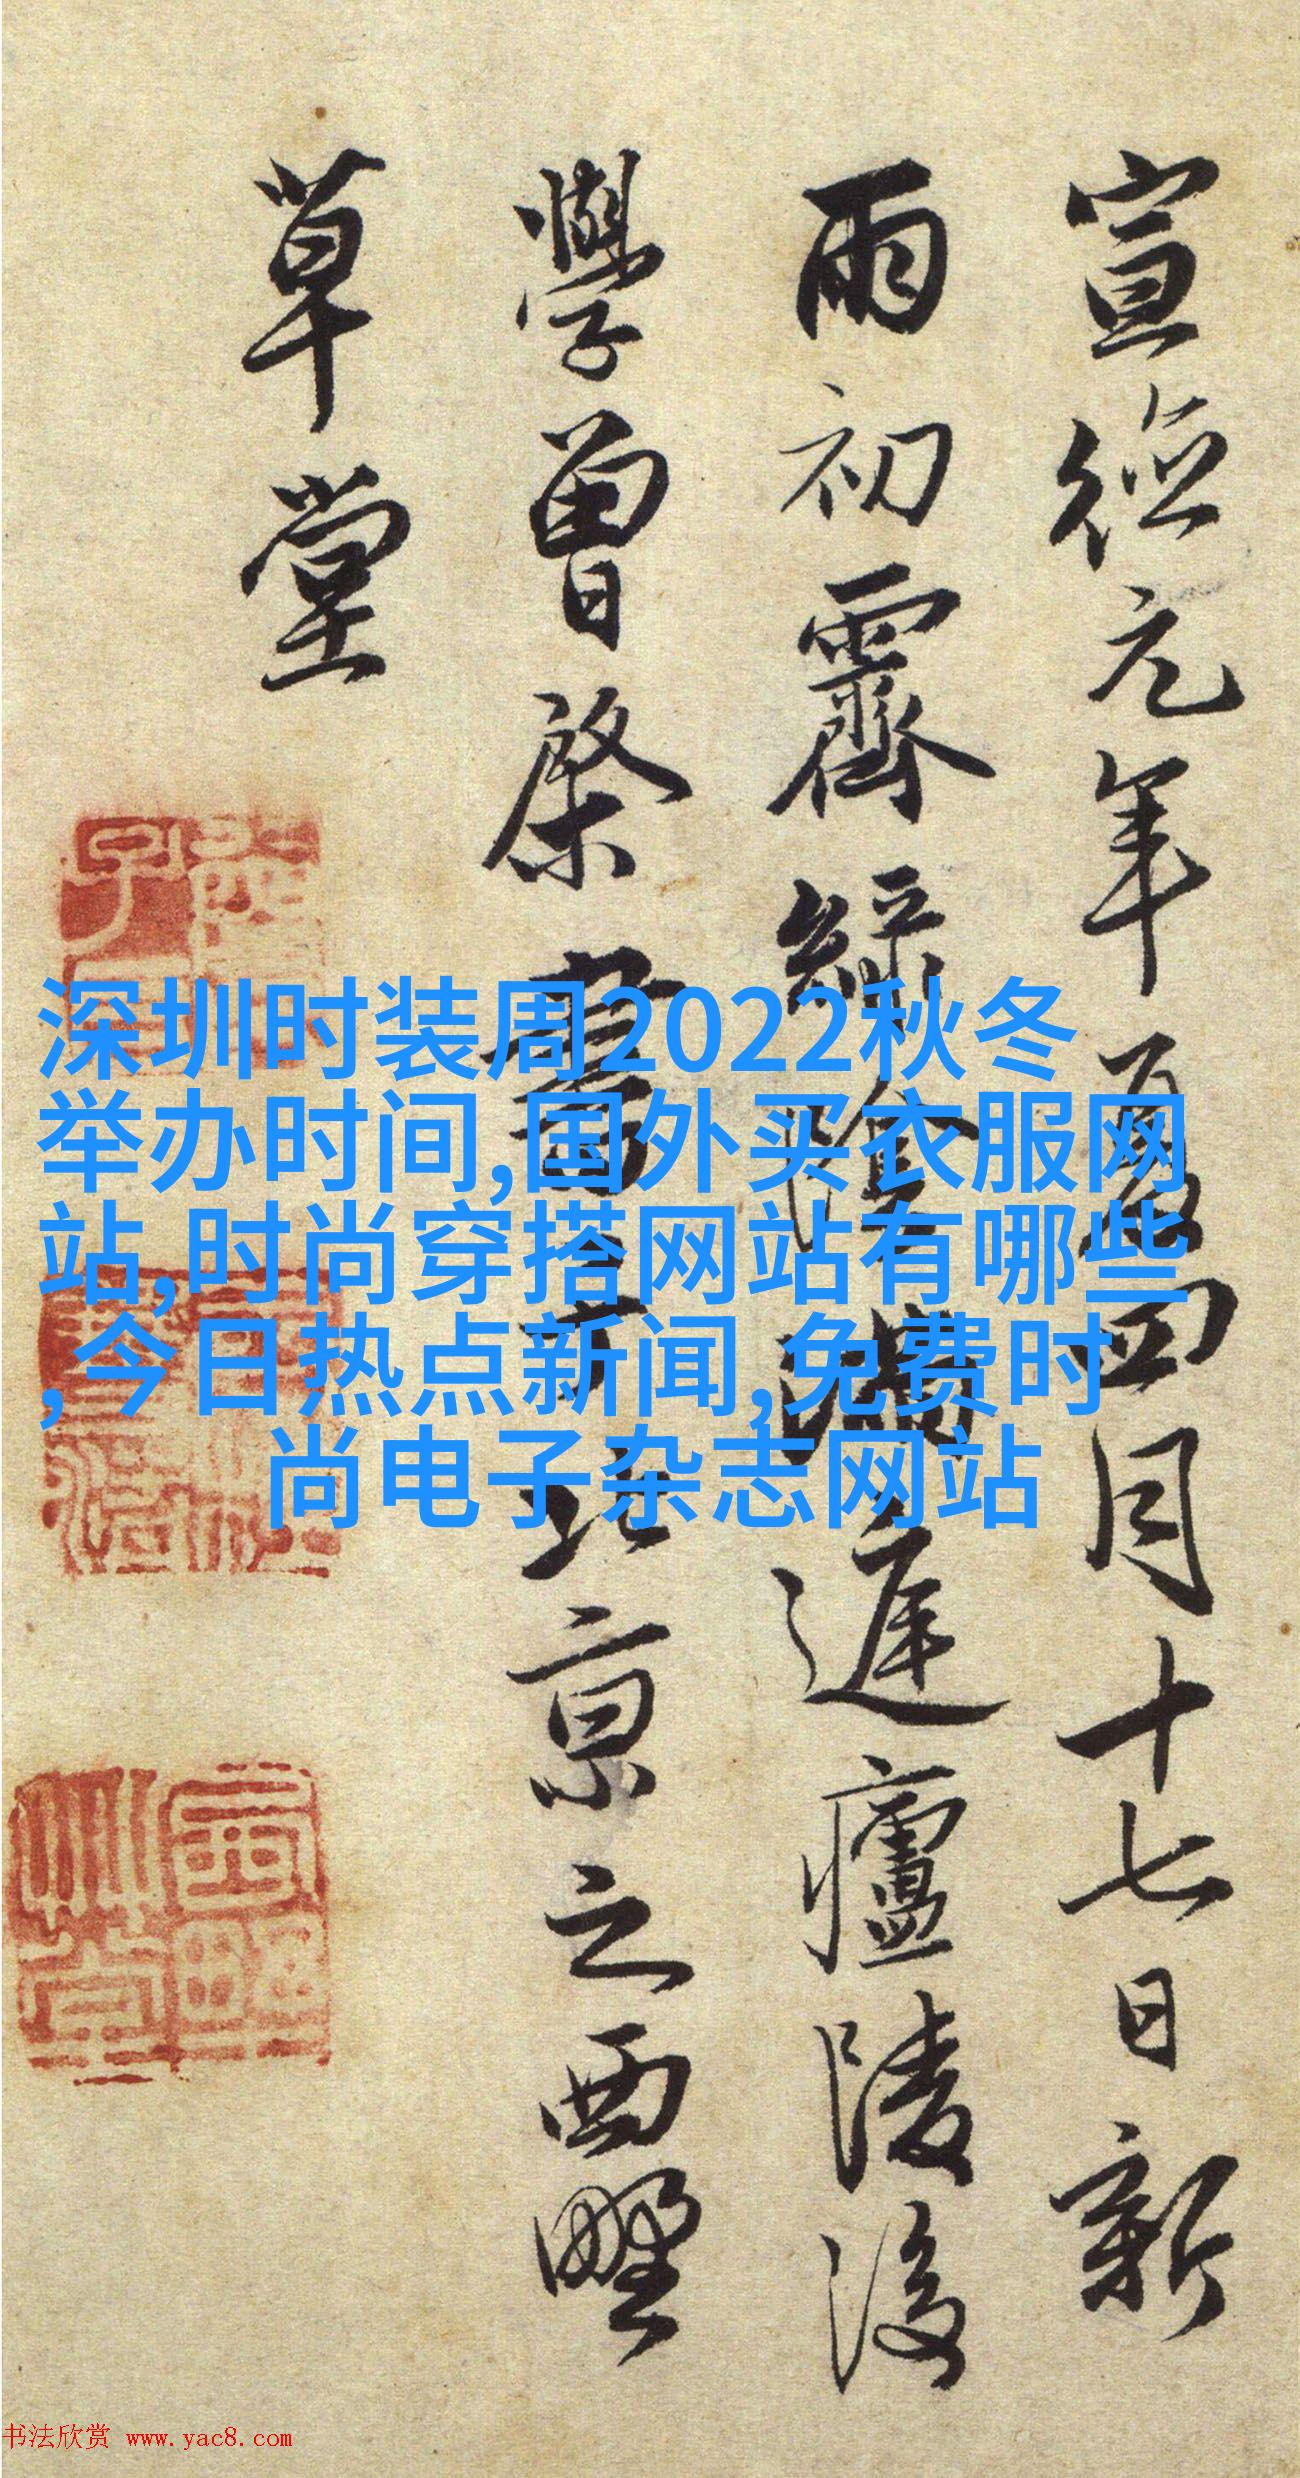 宣德元年夏四月十七日新
雨初霽綠陰滿庭廬陵後
學曾棨書于北京之西墅
草堂
深圳时装周2022秋冬
举办时间,国外买衣服网
站,时尚穿搭网站有哪些
,今日热点新闻,免费时
尚电子杂志网站
书法欣赏 www.yac8.com